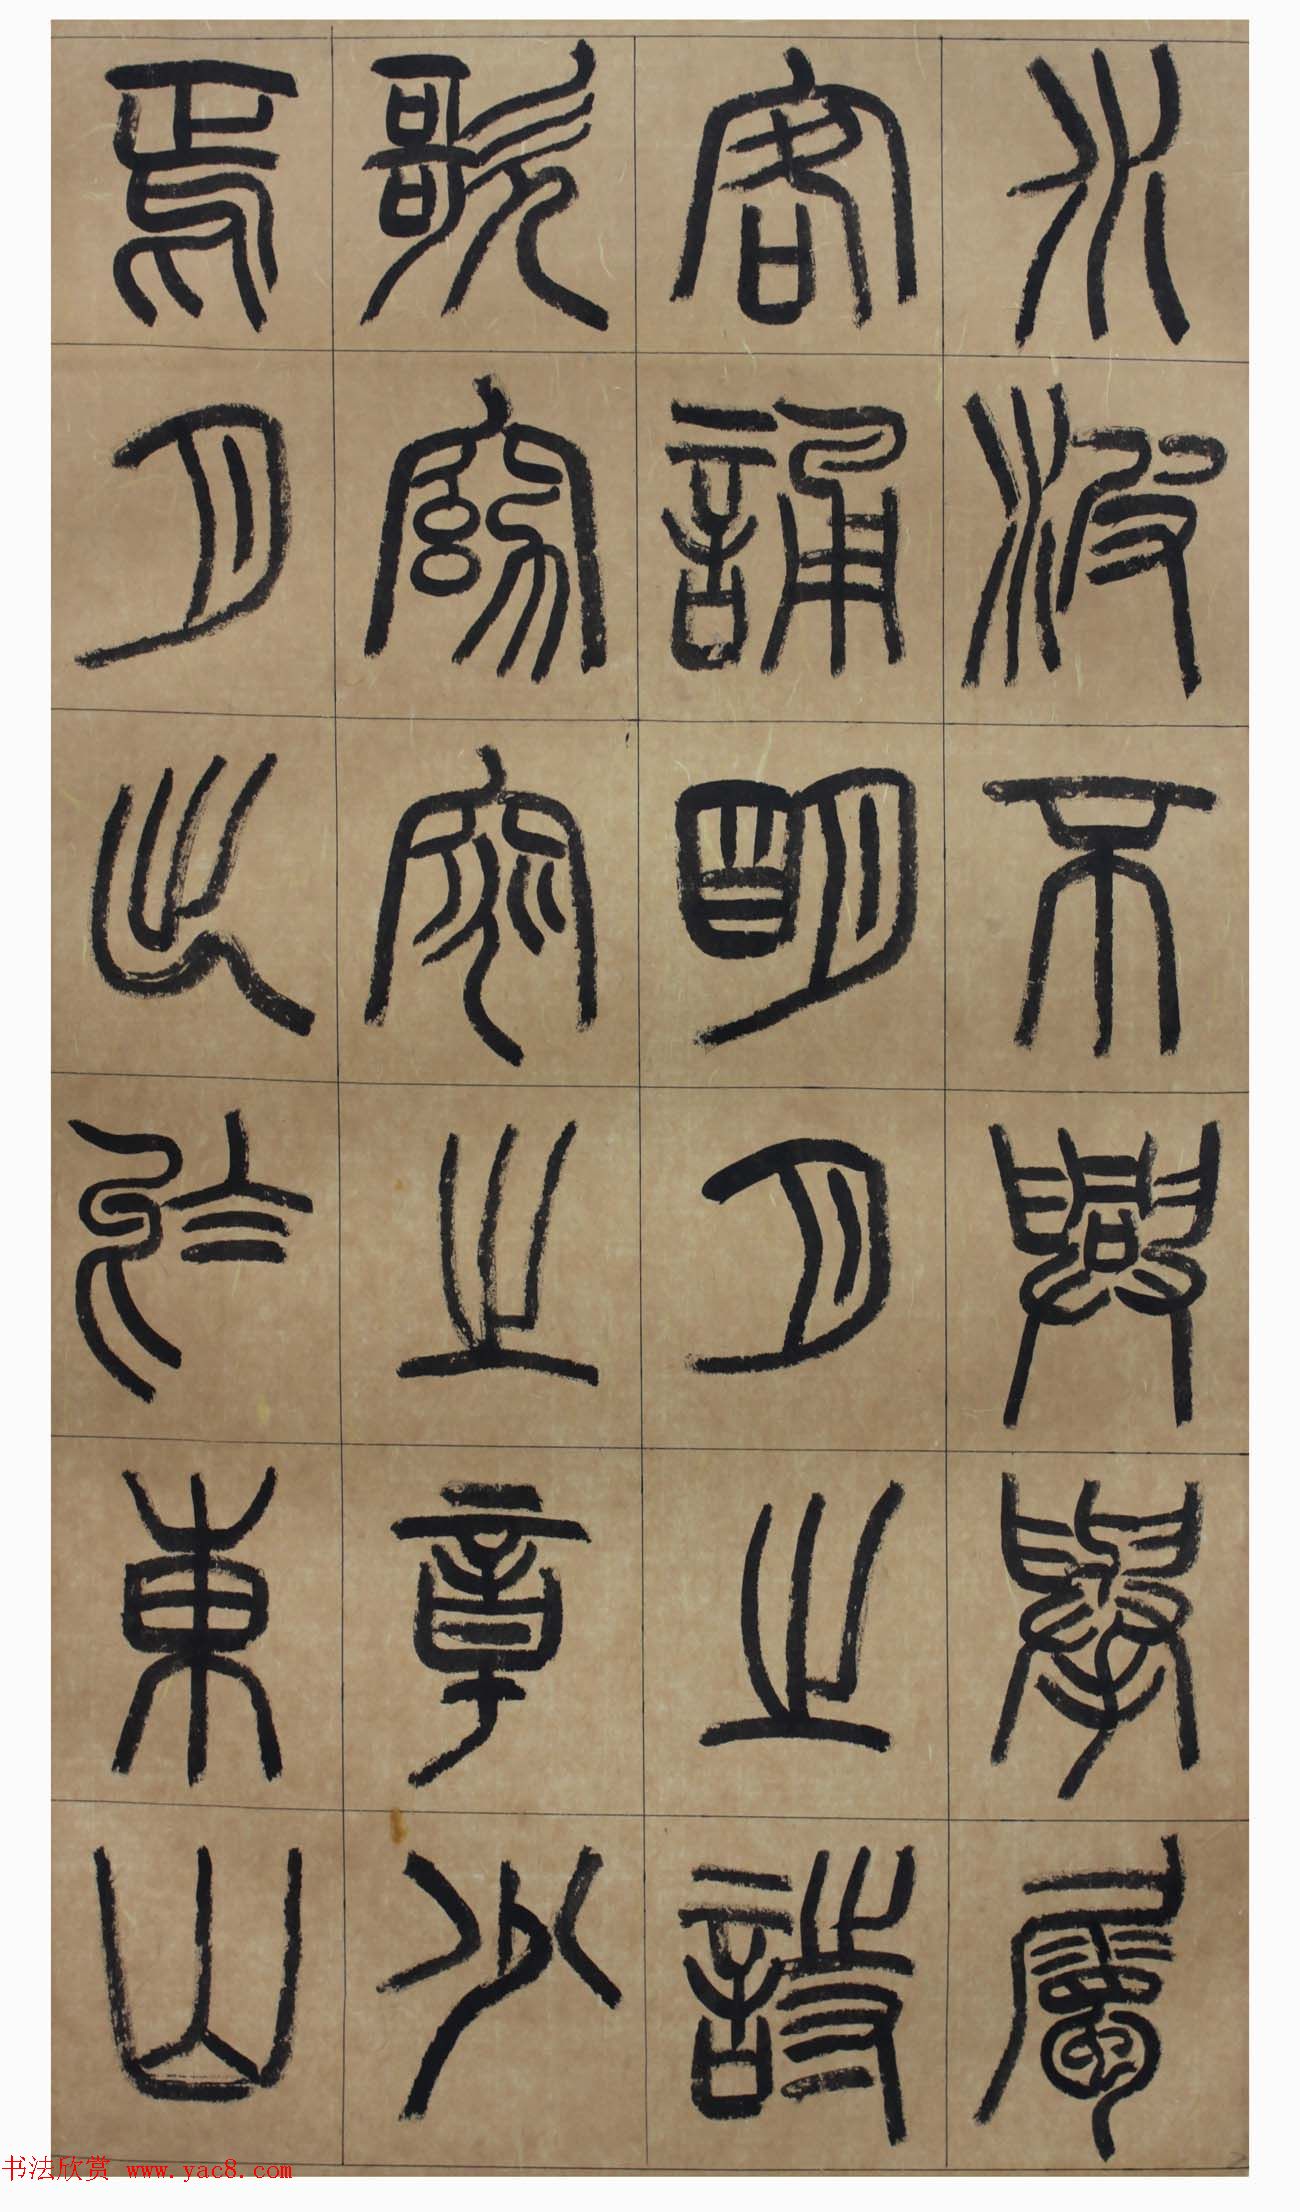 水波不興舉屬
客誦明月之詩
歌窈窕之章少
焉月出於東山
书法欣赏 www.yac8.com